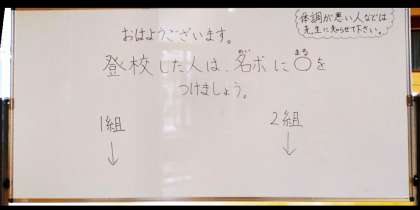 おはようございます。
体調が悪い人などは
先生に知らせて下さい。
登校した人は、名ボに○を
つけましょう。
1組
2組